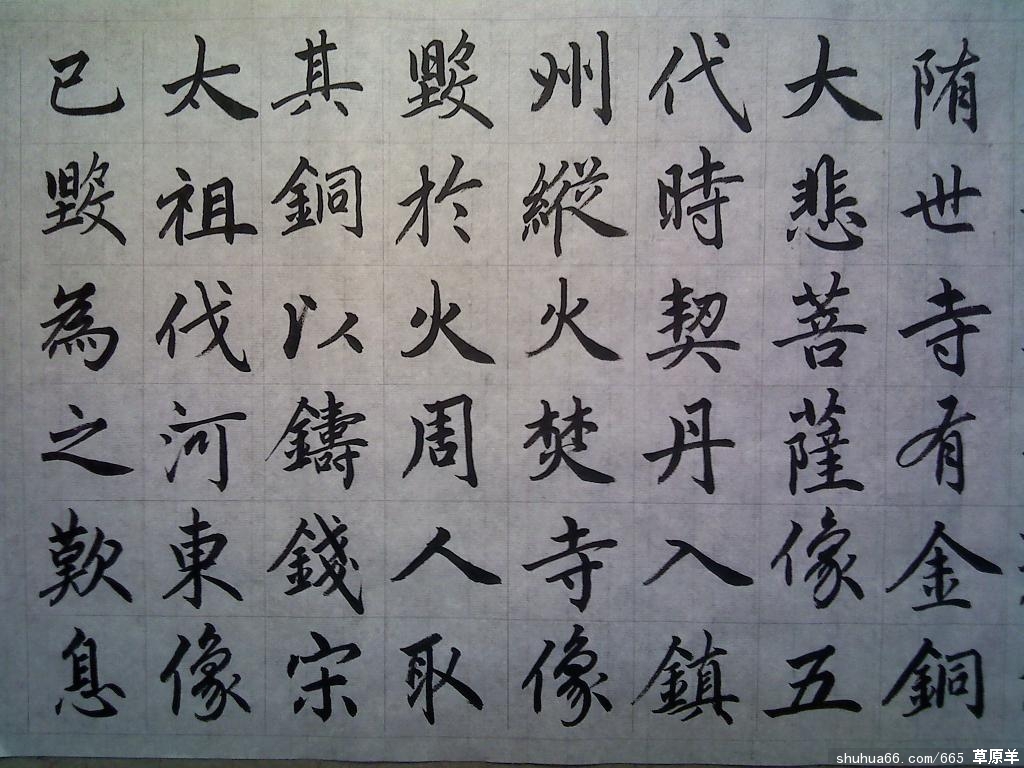 隋世寺有金銅
大悲菩薩像五
代時契丹入鎮
州縱火焚寺像
毀於火周人取
其銅以鑄錢宋
太祖伐河東像
已毀為之歎息
shuhua66.com/665 草原羊